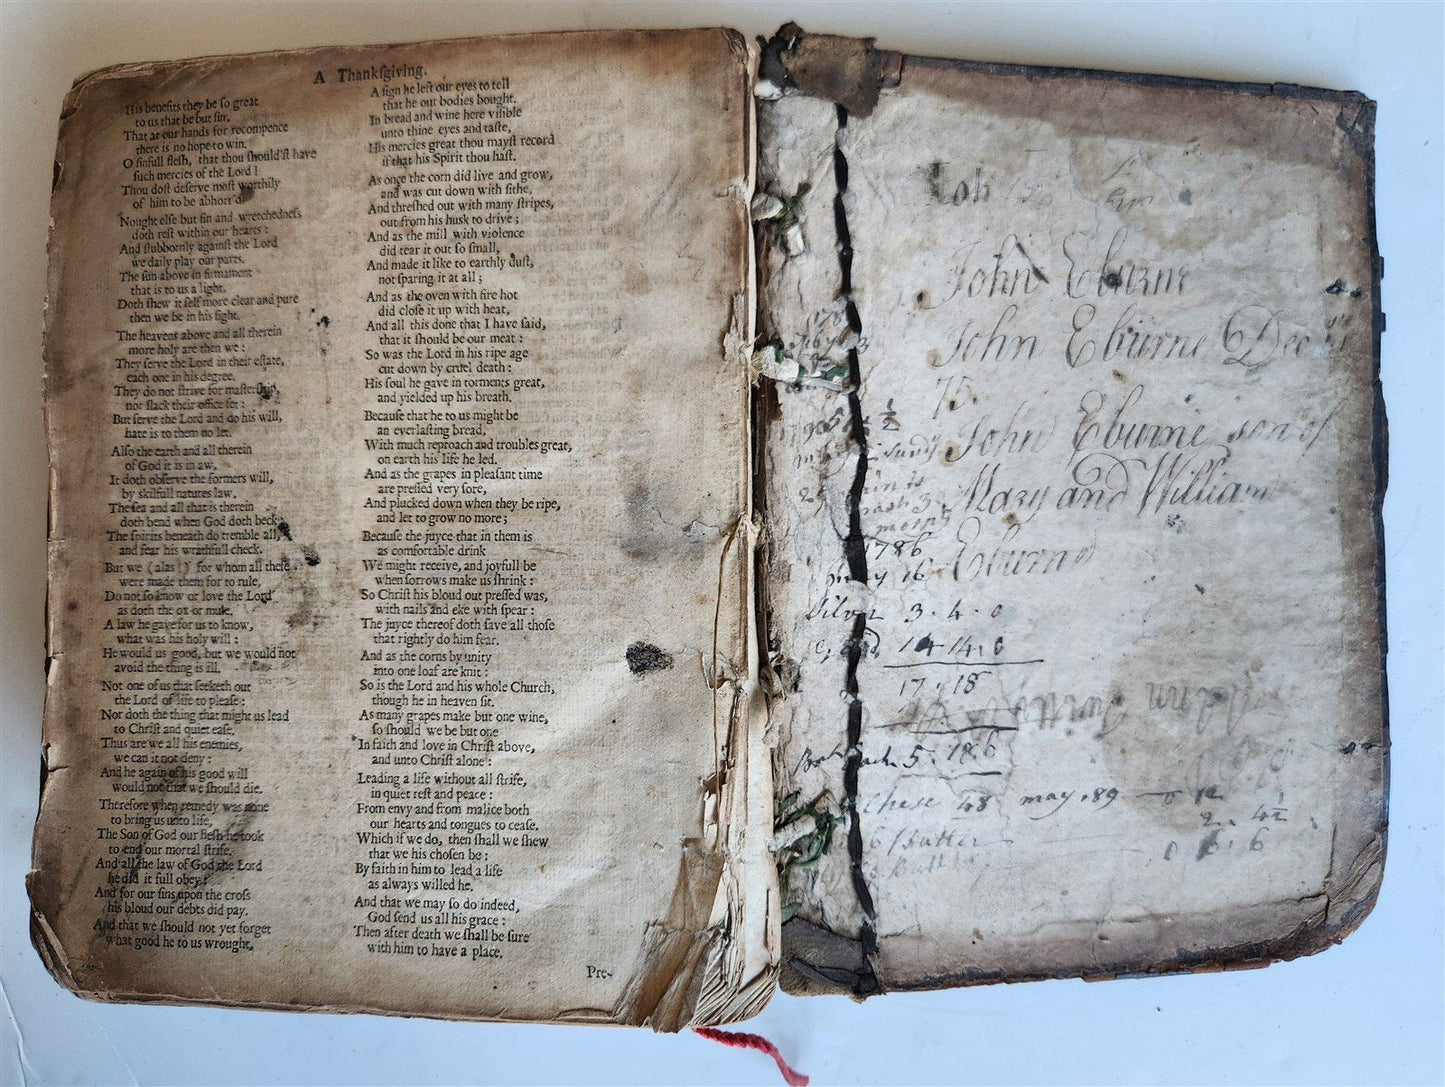 A Thankſgiving.
His benefits they be ſo great
to us that be but ſin,
That at our hands for recompence
there is no hope to win.
O ſinfull fleſh, that thou ſhould'ſt have
ſuch mercies of the Lord!
Thou doſt deſerve moſt worthily
of him to be abhorr'd
Nought elſe but ſin and wretchedneſs
doth reſt within our hearts:
And ſtubbornly againſt the Lord
we daily play our parts.
The ſun above in firmament
that is to us a light,
Doth ſhew it ſelf more clear and pure
then we be in his ſight.
The heavens above and all therein
more holy are then we:
They ſerve the Lord in their eſtate,
each one in his degree.
They do not ſtrive for maſterſhip,
nor ſlack their office ſet:
But ſerve the Lord and do his will,
hate is to them no let.
Alſo the earth and all therein
of God it is in aw,
It doth obſerve the formers will,
by skilfull natures law.
The ſea and all that is therein
doth bend when God doth beck,
The ſpirits beneath do tremble all,
and fear his wrathfull check.
But we (alas!) for whom all theſe
were made them for to rule,
Do not ſo know or love the Lord
as doth the ox or mule.
A law he gave for us to know,
what was his holy will:
He would us good, but we would not
avoid the thing is ill.
Not one of us that ſeeketh out
the Lord of life to pleaſe:
Nor doth the thing that might us lead
to Chriſt and quiet eaſe.
Thus are we all his enemies,
we can it not deny:
And he again of his good will
would not that we ſhould die.
Therefore when remedy was none
to bring us unto life,
The Son of God our fleſh he took
to end our mortal ſtrife.
And all the law of God the Lord
he did it full obey:
And for our ſins upon the croſs
his bloud our debts did pay.
And that we ſhould not yet forget
what good he to us wrought,
A ſign he left our eyes to tell
that he our bodies bought.
In bread and wine here viſible
unto thine eyes and taſte,
His mercies great thou mayſt record
if that his Spirit thou haſt.
As once the corn did live and grow,
and was cut down with ſithe,
And threſhed out with many ſtripes,
out from his husk to drive;
And as the mill with violence
did tear it out ſo ſmall,
And made it like to earthly duſt,
not ſparing it at all;
And as the oven with fire hot
did cloſe it up with heat,
And all this done that I have ſaid,
that it ſhould be our meat:
So was the Lord in his ripe age
cut down by cruel death:
His ſoul he gave in torments great,
and yielded up his breath.
Becauſe that he to us might be
an everlaſting bread,
With much reproach and troubles great,
on earth his life he led.
And as the grapes in pleaſant time
are preſſed very ſore,
And plucked down when they be ripe,
and let to grow no more;
Becauſe the juyce that in them is
as comfortable drink
We might receive, and joyfull be
when ſorrows make us ſhrink:
So Chriſt his bloud out preſſed was,
with nails and eke with ſpear:
The juyce thereof doth ſave all thoſe
that rightly do him fear.
And as the corns by unity
into one loaf are knit:
So is the Lord and his whole Church,
though he in heaven ſit.
As many grapes make but one wine,
ſo ſhould we be but one
In faith and love in Chriſt above,
and unto Chriſt alone:
Leading a life without all ſtrife,
in quiet reſt and peace:
From envy and from malice both
our hearts and tongues to ceaſe.
Which if we do, then ſhall we ſhew
that we his choſen be:
By faith in him to lead a life
as always willed he.
And that we may ſo do indeed,
God ſend us all his grace:
Then after death we ſhall be ſure
with him to have a place.
Pre-
John Eburne
John Eburne Dec
75
John Eburne son of
Mary and William
Eburne
1786
may 16
Silver 3.4.0
14.14.6
17 . 18
5.18.6
Chese 48 may .89 0 12
2. 4½
Butter 0 6.6